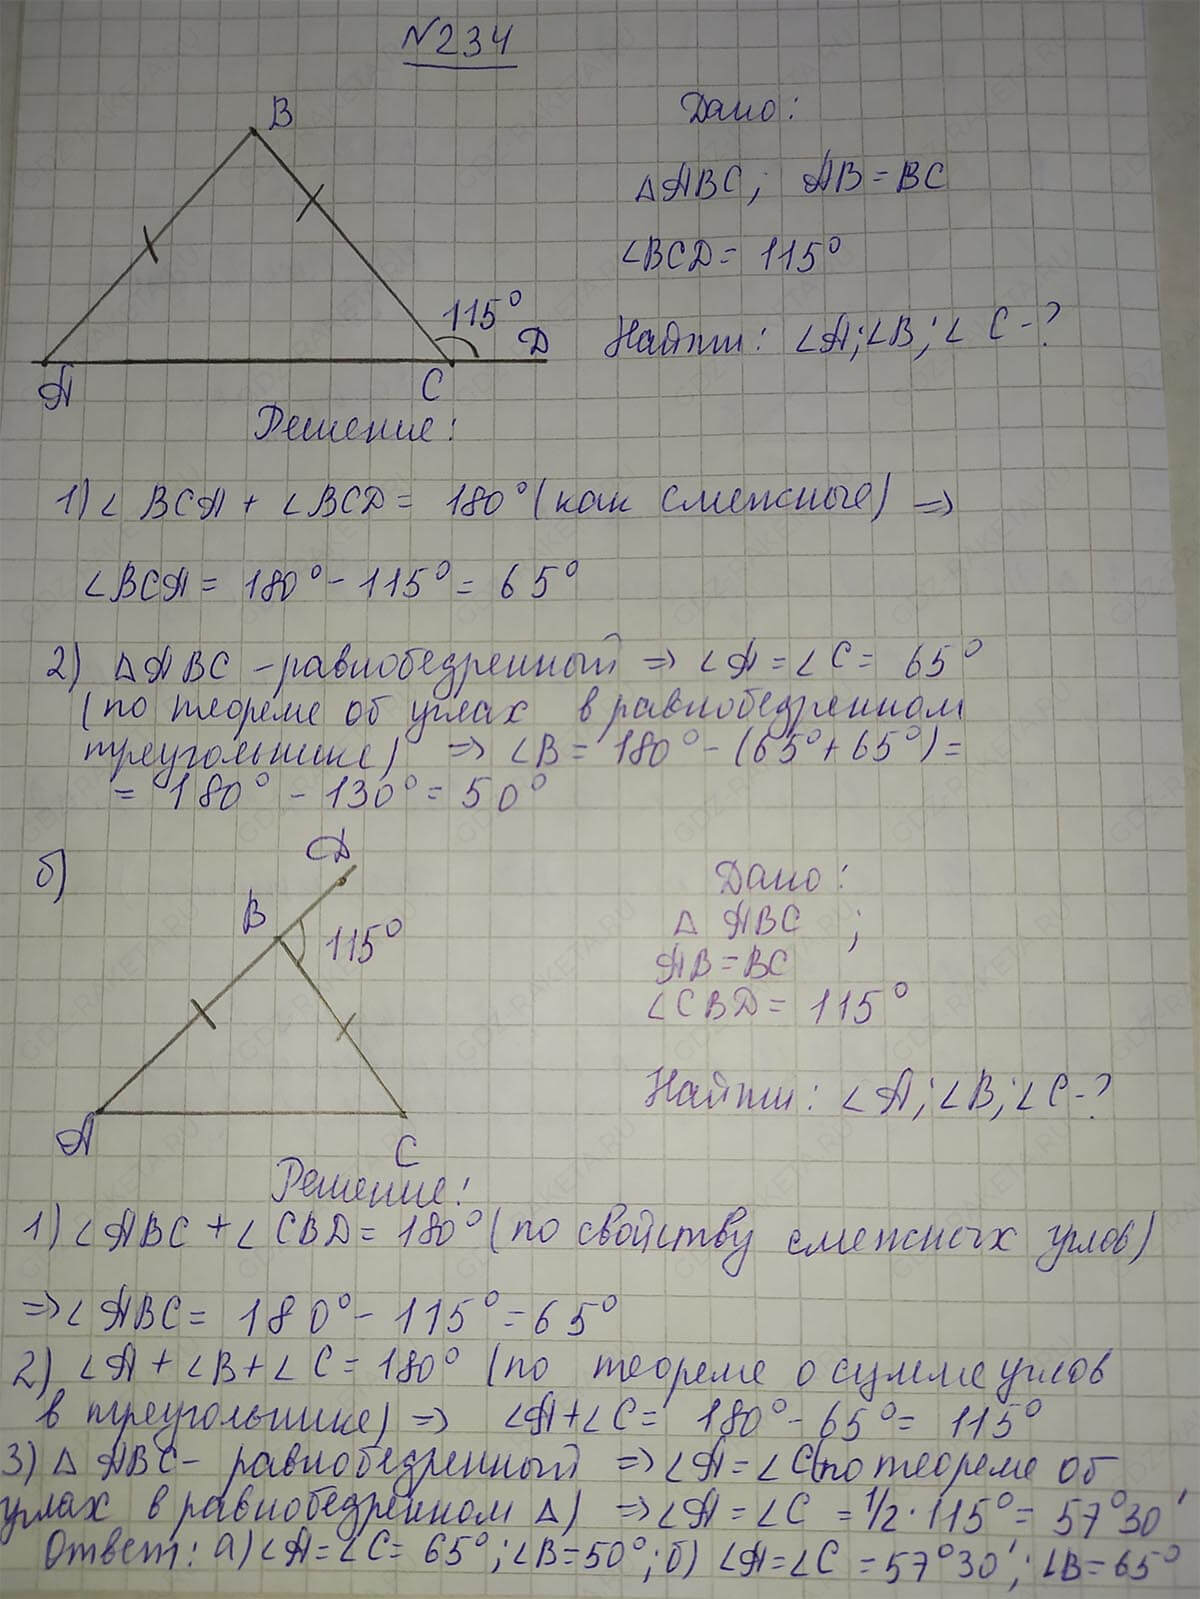 №234
B
Дано:
△ABC; AB=BC
∠BCD= 115°
115°
D
Найти: ∠A;∠B;∠C-?
A
C
Решение:
1)∠BCA+∠BCD= 180°(как смежные) =>
∠BCA= 180°-115°= 65°
2) △ABC -равнобедренный => ∠A=∠C= 65°
(по теореме об углах в равнобедренном
треугольнике) => ∠B= 180°-(65°+65°)=
= 180° - 130°= 50°
б)
D
B
115°
Дано:
△ ABC ;
AB=BC
∠CBD= 115°
Найти: ∠A;∠B;∠C-?
A
C
Решение:
1)∠ABC+∠CBD=180°(по свойству смежных углов)
=>∠ABC= 180°-115°=65°
2) ∠A+∠B+∠C=180° (по теореме о сумме углов
в треугольнике) => ∠A+∠C= 180°-65°= 115°
3) △ABC- равнобедренный => ∠A=∠C(по теореме об
углах в равнобедренном △) => ∠A=∠C =1/2·115°= 57°30′
Ответ: а)∠A=∠C= 65°;∠B=50°; б) ∠A=∠C=57°30′; ∠B=65°